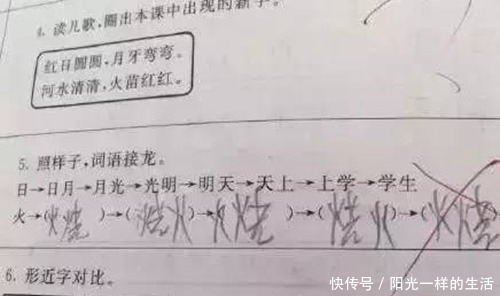 4. 读儿歌,圈出本课中出现的新字。
红日圆圆,月牙弯弯。
河水清清,火苗红红。
5. 照样子,词语接龙。
日→日月→月光→光明→明天→天上→上学→学生
火→(火烧)→(烧火)→(火烧)→(烧火)→(火烧)
6. 形近字对比。
快传号/阳光一样的生活